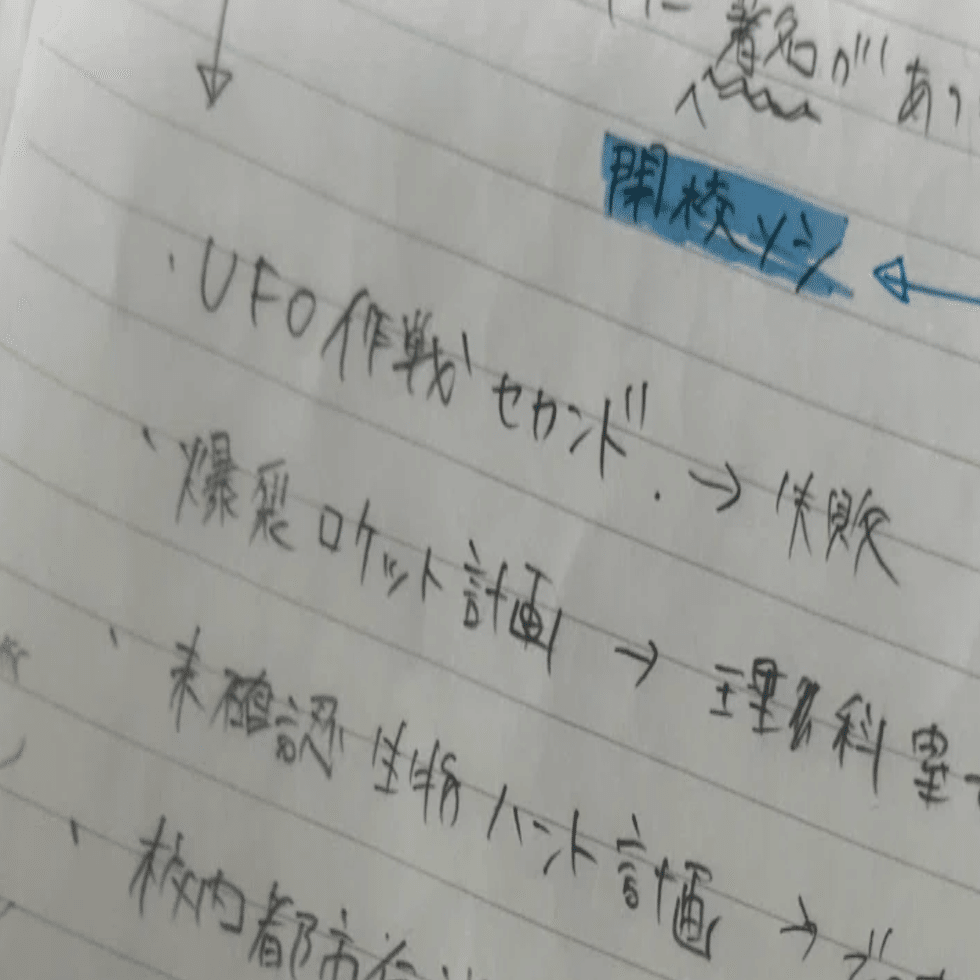 著名があ
開校ソン
・UFO作戦セカンド.→失敗
、爆裂ロケット計画→理科室
、未確認生物ハント計画→ブ
、校内都市伝